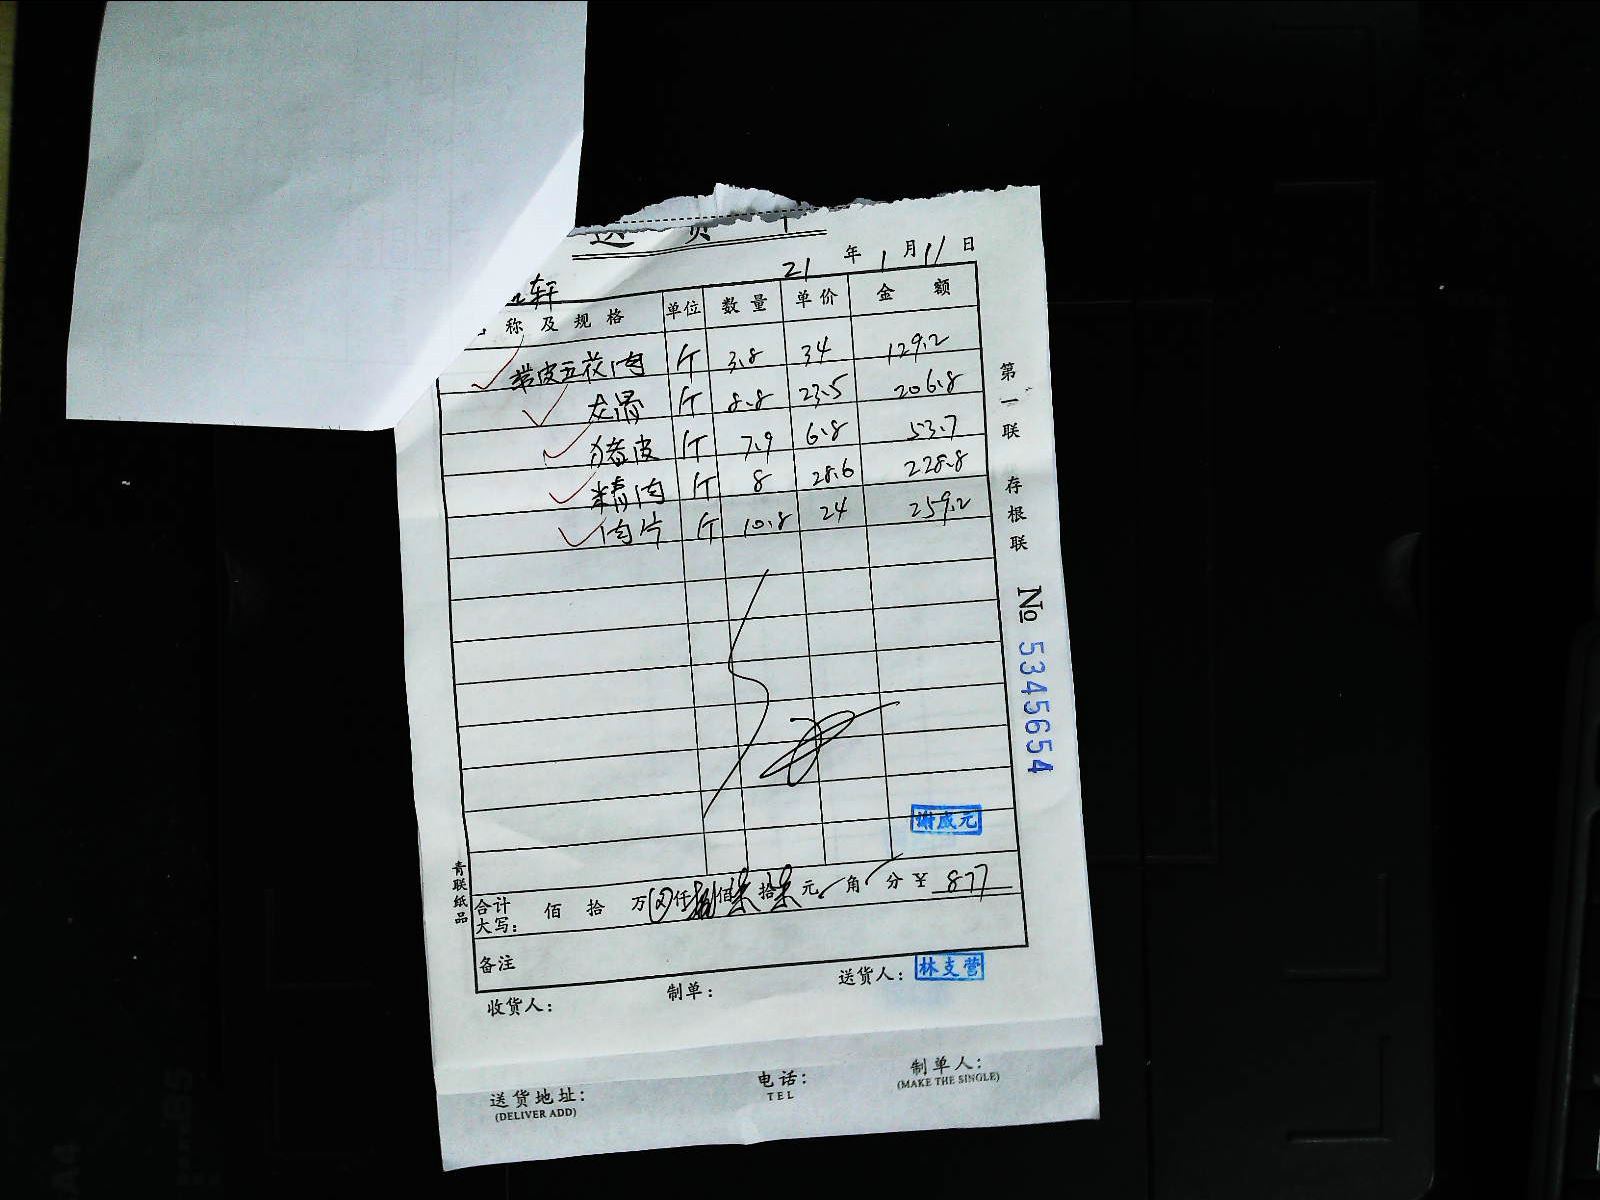 送货单
21年1月11日
轩
称及规格 单位 数量 单价 金额
带皮五花肉 斤 3.8 34 129.2
龙骨 斤 8.8 23.5 206.8
猪皮 斤 7.9 6.8 53.7
精肉 斤 8 28.6 228.8
肉片 斤 10.8 24 259.2
第一联 存根联
№ 5345654
谢成元
青联纸品
合计大写: 佰 拾 万 仟捌佰柒拾柒元 角 分 ¥ 877
备注
收货人: 制单: 送货人: 林支营
送货地址: 电话: 制单人:
(DELIVER ADD) TEL (MAKE THE SINGLE)
A4